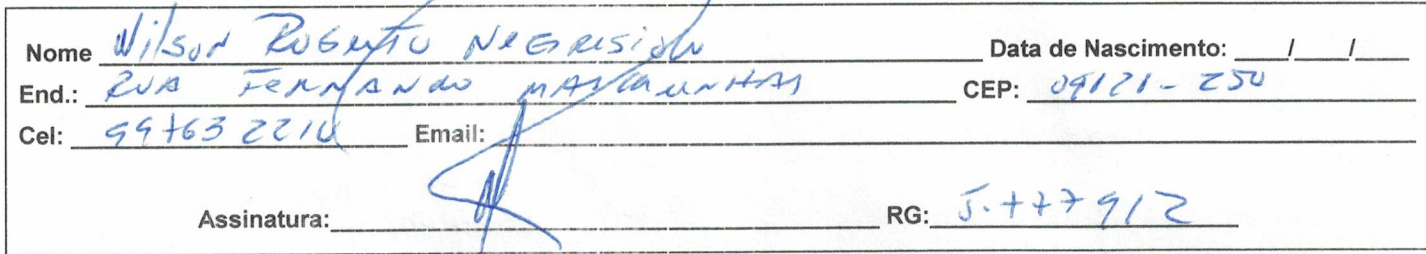 Nome Wilson Roberto Data de Nascimento: ___/___/___
End.: RUA FERNANDO CEP: 09121-250
Cel: 99763 2210 Email:
Assinatura: RG: 5.777912